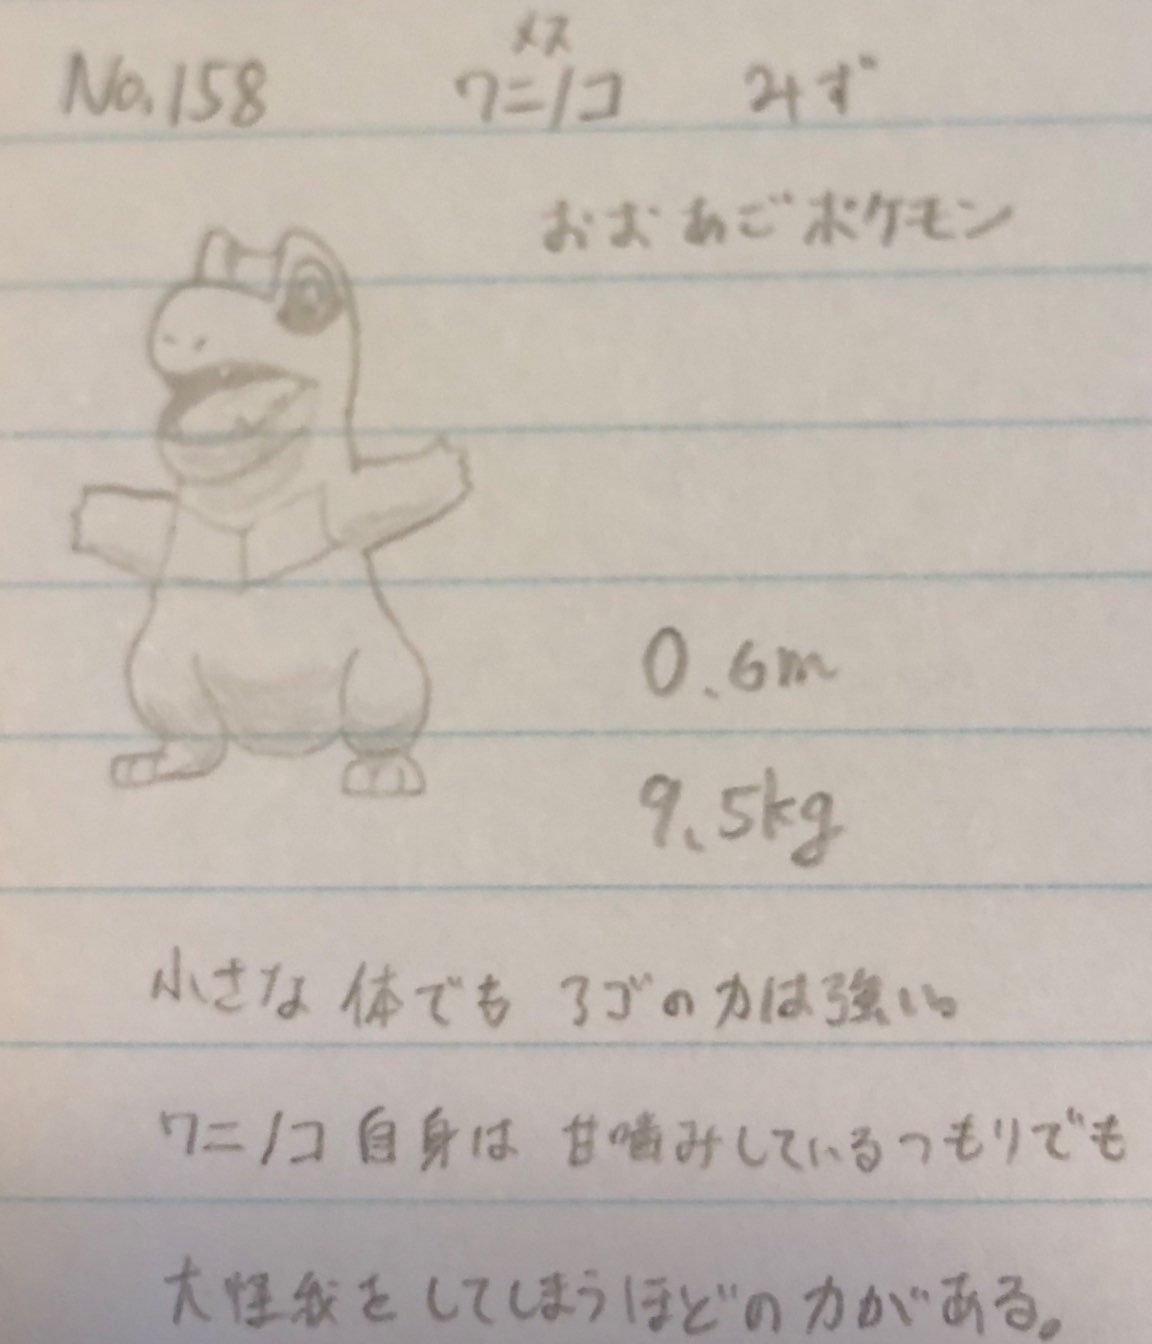 No.158 メス ワニノコ みず
おおあごポケモン
0.6m
9.5kg
小さな体でもアゴの力は強い。
ワニノコ自身は甘噛みしているつもりでも
大怪我をしてしまうほどの力がある。